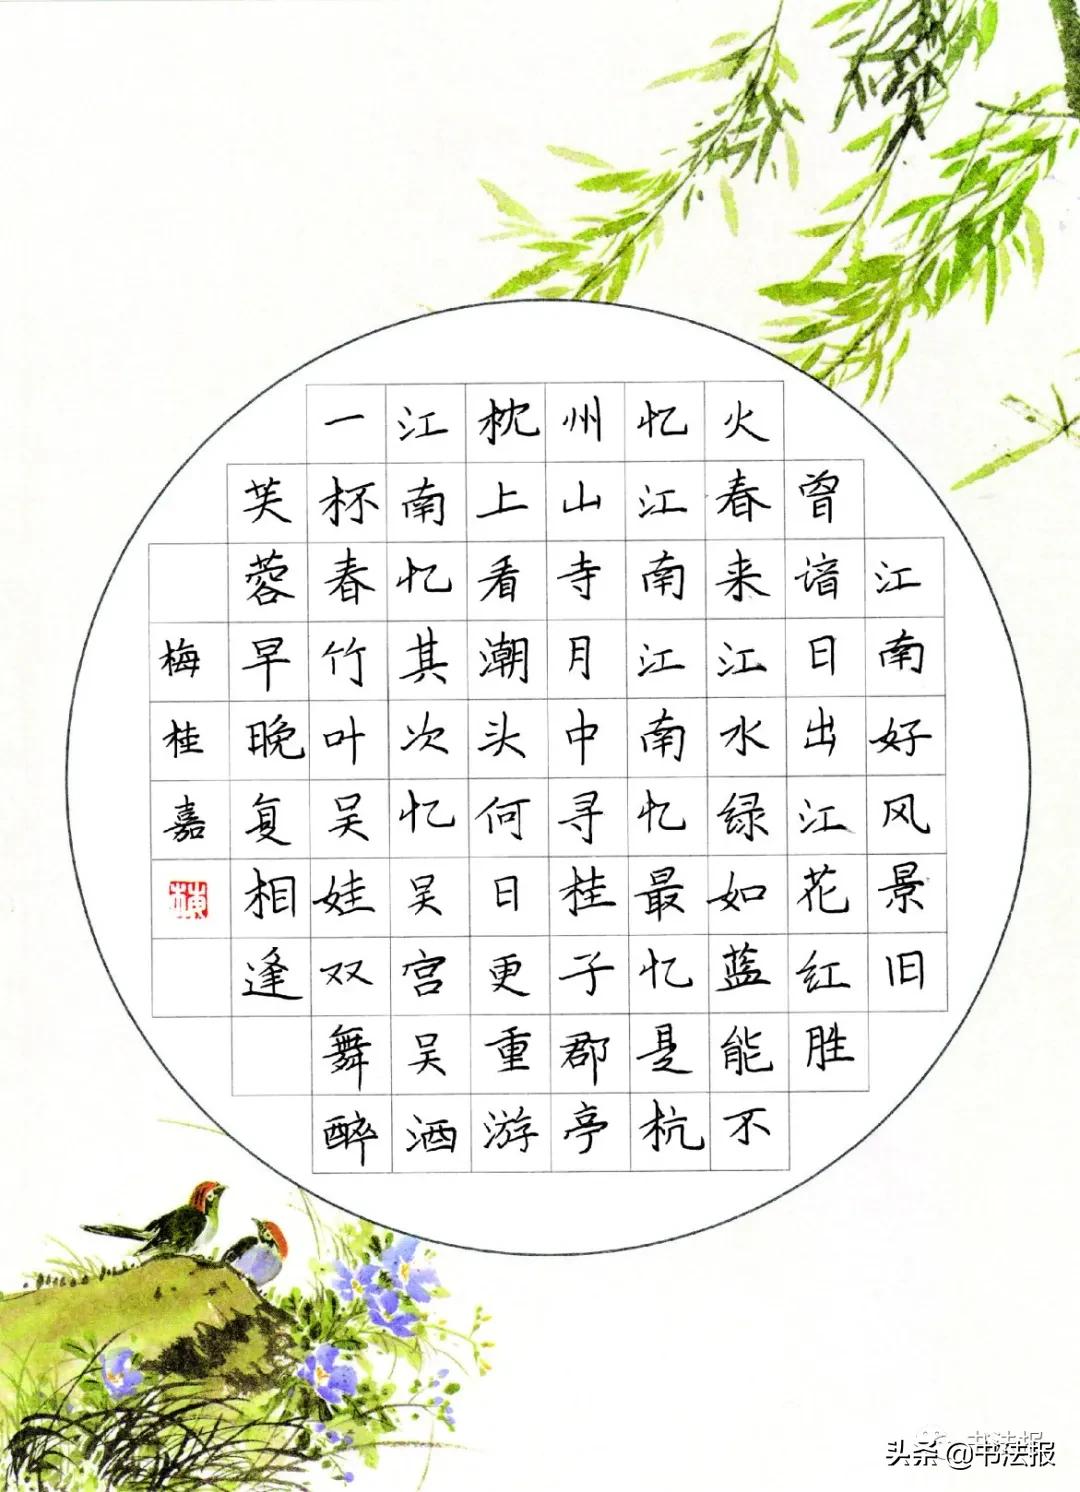 江南好风景旧
曾谙日出江花红胜
火春来江水绿如蓝能不
忆江南江南忆最忆是杭
州山寺月中寻桂子郡亭
枕上看潮头何日更重游
江南忆其次忆吴宫吴酒
一杯春竹叶吴娃双舞醉
芙蓉早晚复相逢
梅桂嘉
书法报
头条 @书法报